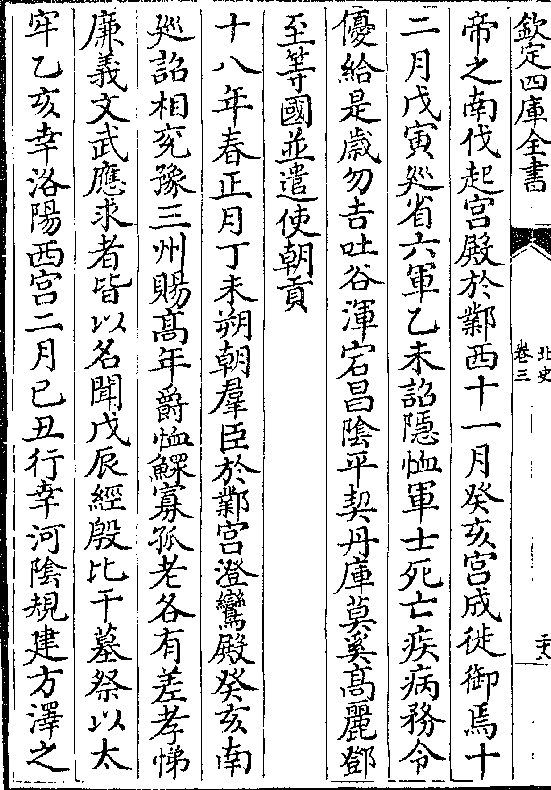 欽定四庫全書
北史
卷三
三六
帝之南伐起宮殿於鄴西十一月癸亥宮成徙御焉十
二月戊寅廵省六軍乙未詔隱恤軍士死亡疾病務令
優給是歲勿吉吐谷渾宕昌陰平契丹庫莫奚髙麗鄧
至等國並遣使朝貢
十八年春正月丁未朔朝羣臣於鄴宮澄鸞殿癸亥南
廵詔相兖豫三州賜髙年爵恤鰥寡孤老各有差孝悌
廉義文武應求者皆以名聞戊辰經殷比干墓祭以太
牢乙亥幸洛陽西宮二月已丑行幸河隂規建方澤之